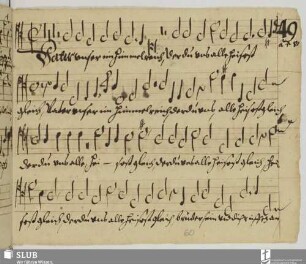 49
Vater unser im himmelreich der du uns alle heissest
gleich Vater unser im himmelreich der du uns alle heissest gleich
der du uns alle hei - sest gleich der du uns alle heissest gleich hei
sest gleich der du uns alle heissest gleich brüder sein und dich
60
SLUB
Wir führen Wissen.